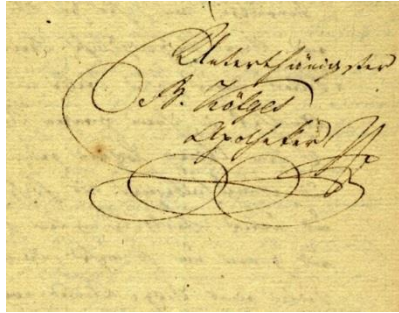 Unterthänigster
B. Kölges
Apotheker